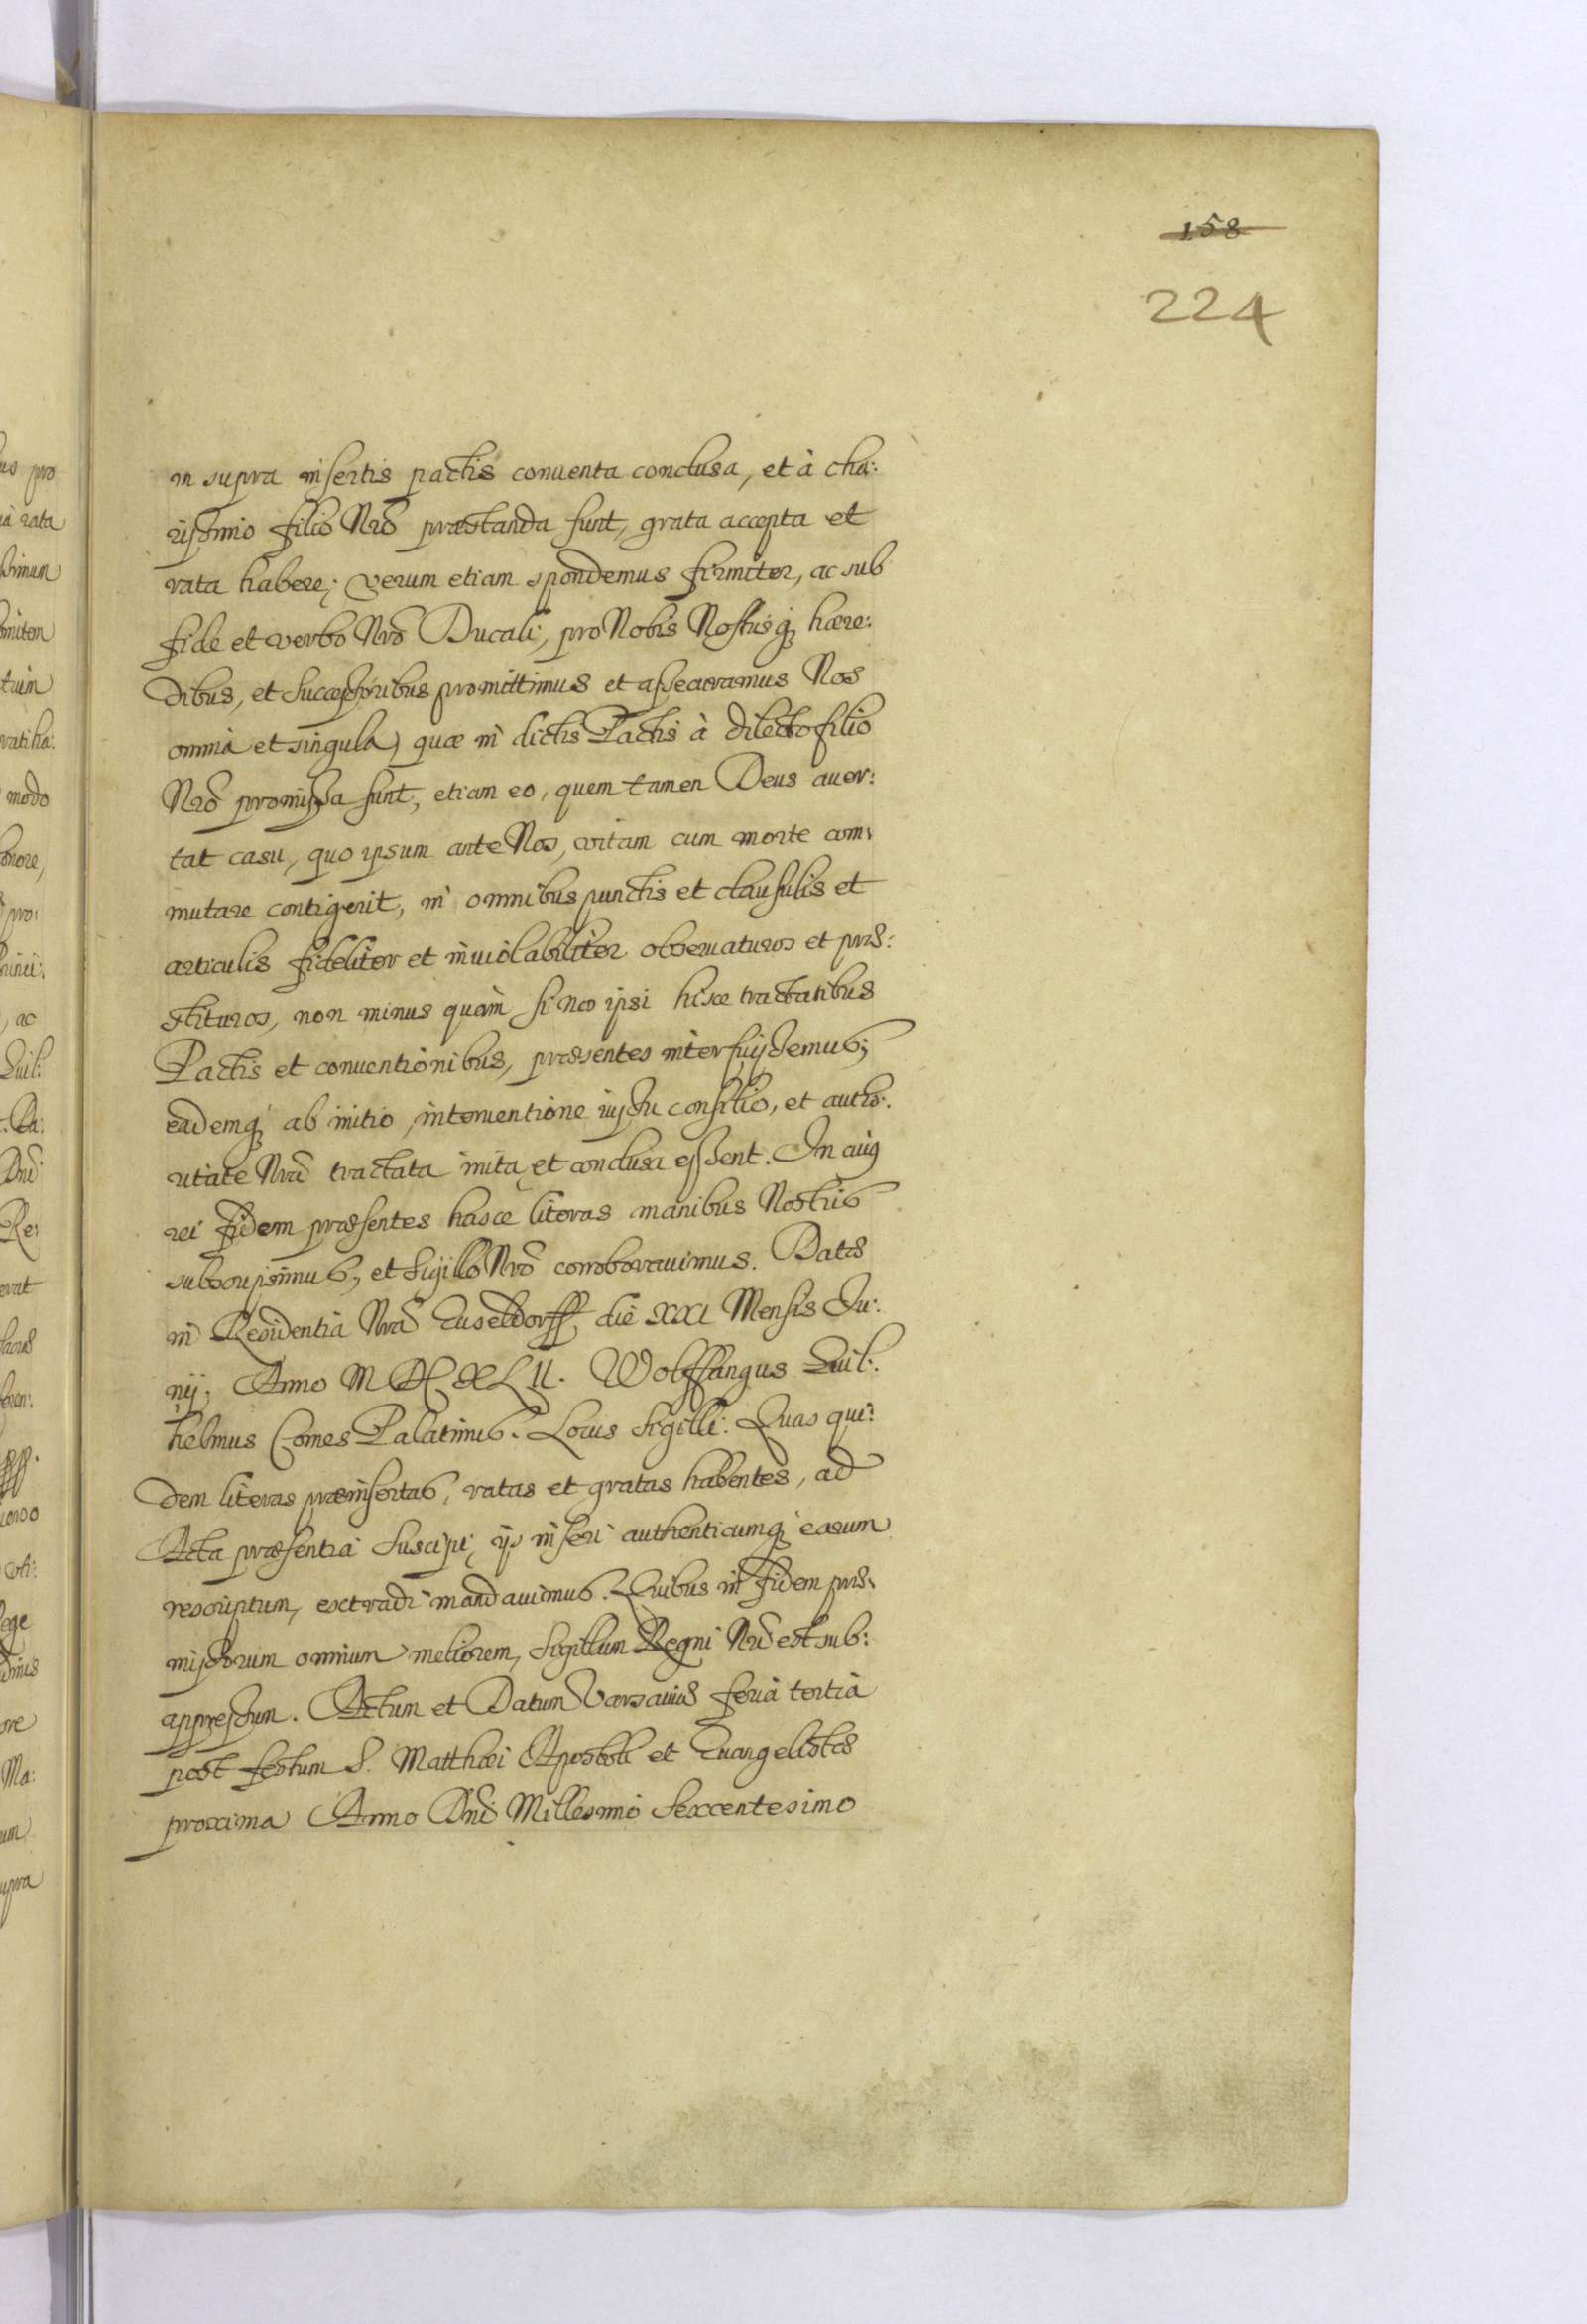 158
224
in supra insertis pactis conuenta conclusa, et à cha:
rissimo filio Nrõ præstanda sunt, grata accepta et
rata habere; verum etiam spondemus firmiter, ac sub
fide et verbo Nrõ Ducali, pro Nobis Nostrisq; hære:
dibus, et successoribus promittimus et assecuramus Nos
omnia et singula, quæ in dictis Pactis à dilecto filio
Nrõ promissa sunt, etiam eo, quem tamen Deus auer:
tat casu, quo ipsum ante Nos, vitam cum morte com:
mutare contigerit, in omnibus punctis et clausulis et
articulis fideliter et inuiolabiliter obseruaturos et præ:
stituros, non minus quàm si nos ipsi hisce tractatibus
Pactis et conuentionibus, præsentes interfuissemus;
eademq; ab initio, interuentione iussu consilio, et autho:
ritate Nrã tractata inita et conclusa essent. In cuius
rei fidem præsentes hasce literas manibus Nostris
subscripsimus, et sigillo Nrõ corroborauimus. Datæ
in Residentia Nrã Duseldorff die XXI Mensis Iu:
nij. Anno MDCXLII. Wolffgangus Guil:
helmus Comes Palatinus. Locus Sigilli. Quas qui:
dem literas præinsertas, ratas et gratas habentes, ad
Acta præsentia suscipi, ijs inseri authenticumq; earum
rescriptum, extradi mandauimus. Quibus in fidem præ:
missorum omnium meliorem, Sigillum Regni Nrĩ est sub:
appressum. Actum et Datum Varsauiæ feria tertia
post festum S. Matthæi Apostoli et Euangelistæ
proxima Anno Dnĩ Millesimo Sexcentesimo